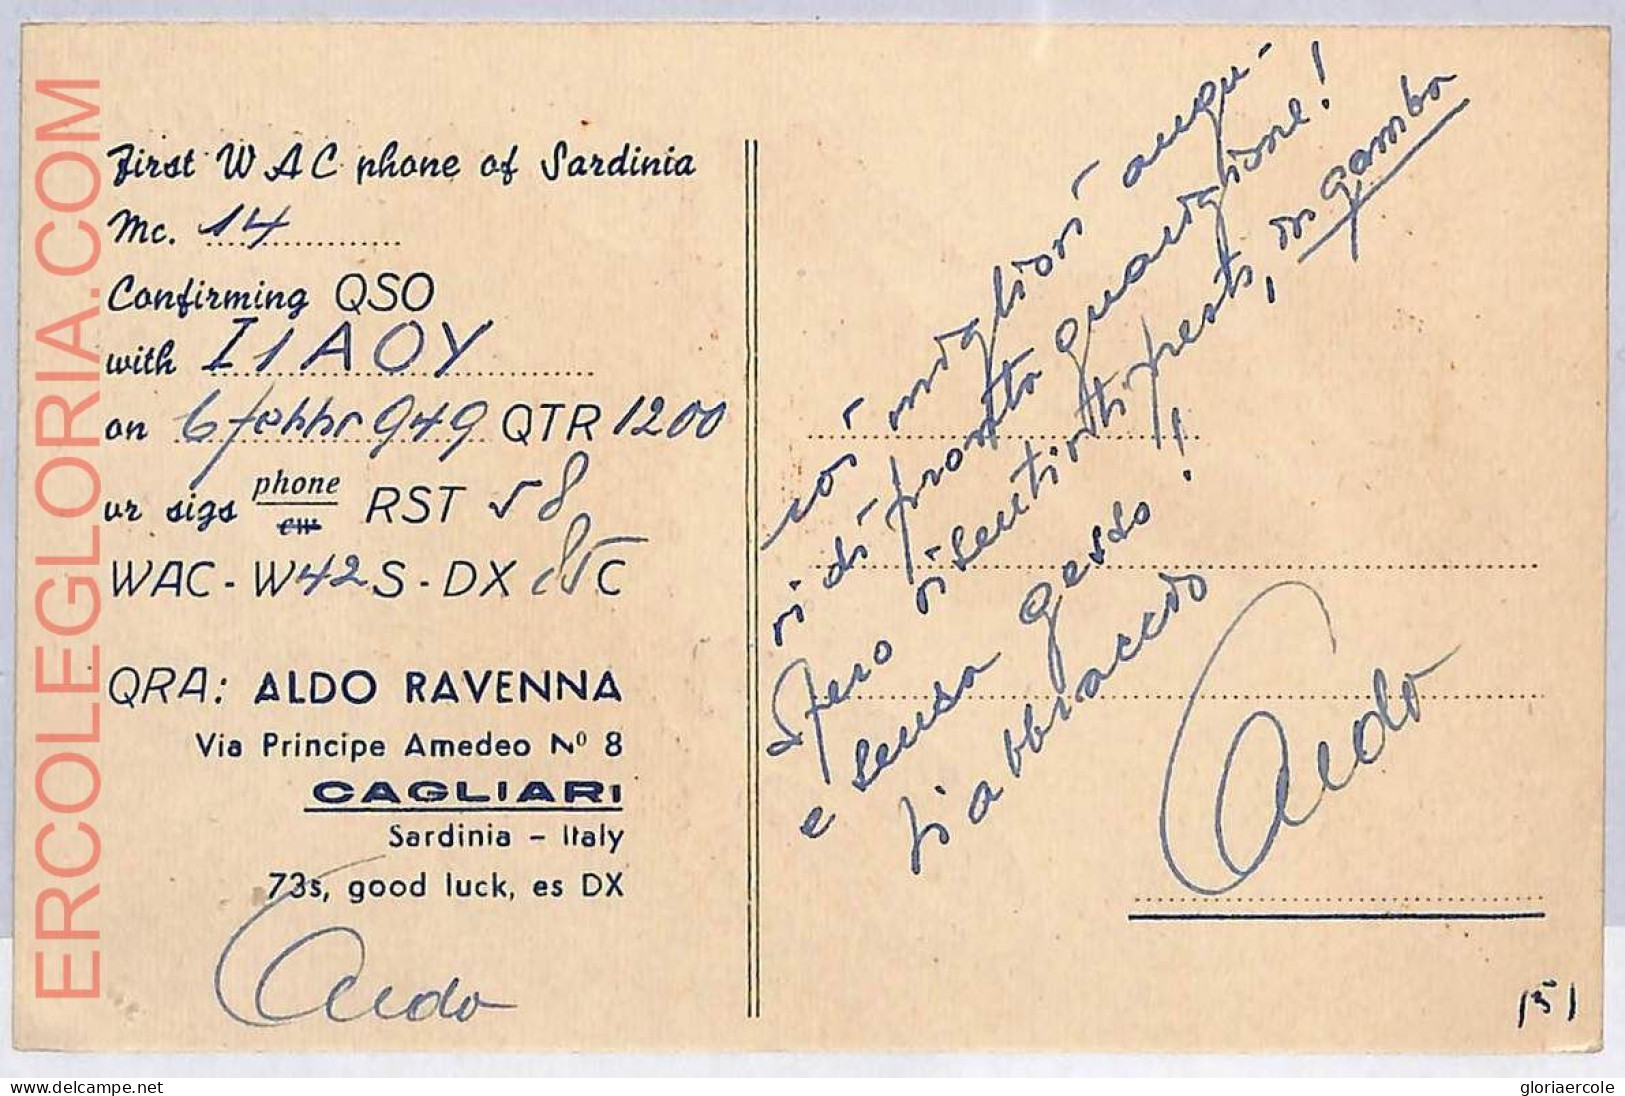 ERCOLEGLORIA.COM
First WAC phone of Sardinia
Mc. 14
Confirming QSO
with I1AOY
on 6 febbr 949 QTR 1200
ur sigs phone cw RST 58
WAC - W42S - DX
QRA: ALDO RAVENNA
Via Principe Amedeo Nº 8
CAGLIARI
Sardinia - Italy
73s, good luck, es DX
Aldo
coi migliori augu-
ri di pronta guarigione!
Spero risentirti presto, in gamba
e senza gesso!
Ti abbraccio
Aldo
151
gloriaercole
www.delcampe.net